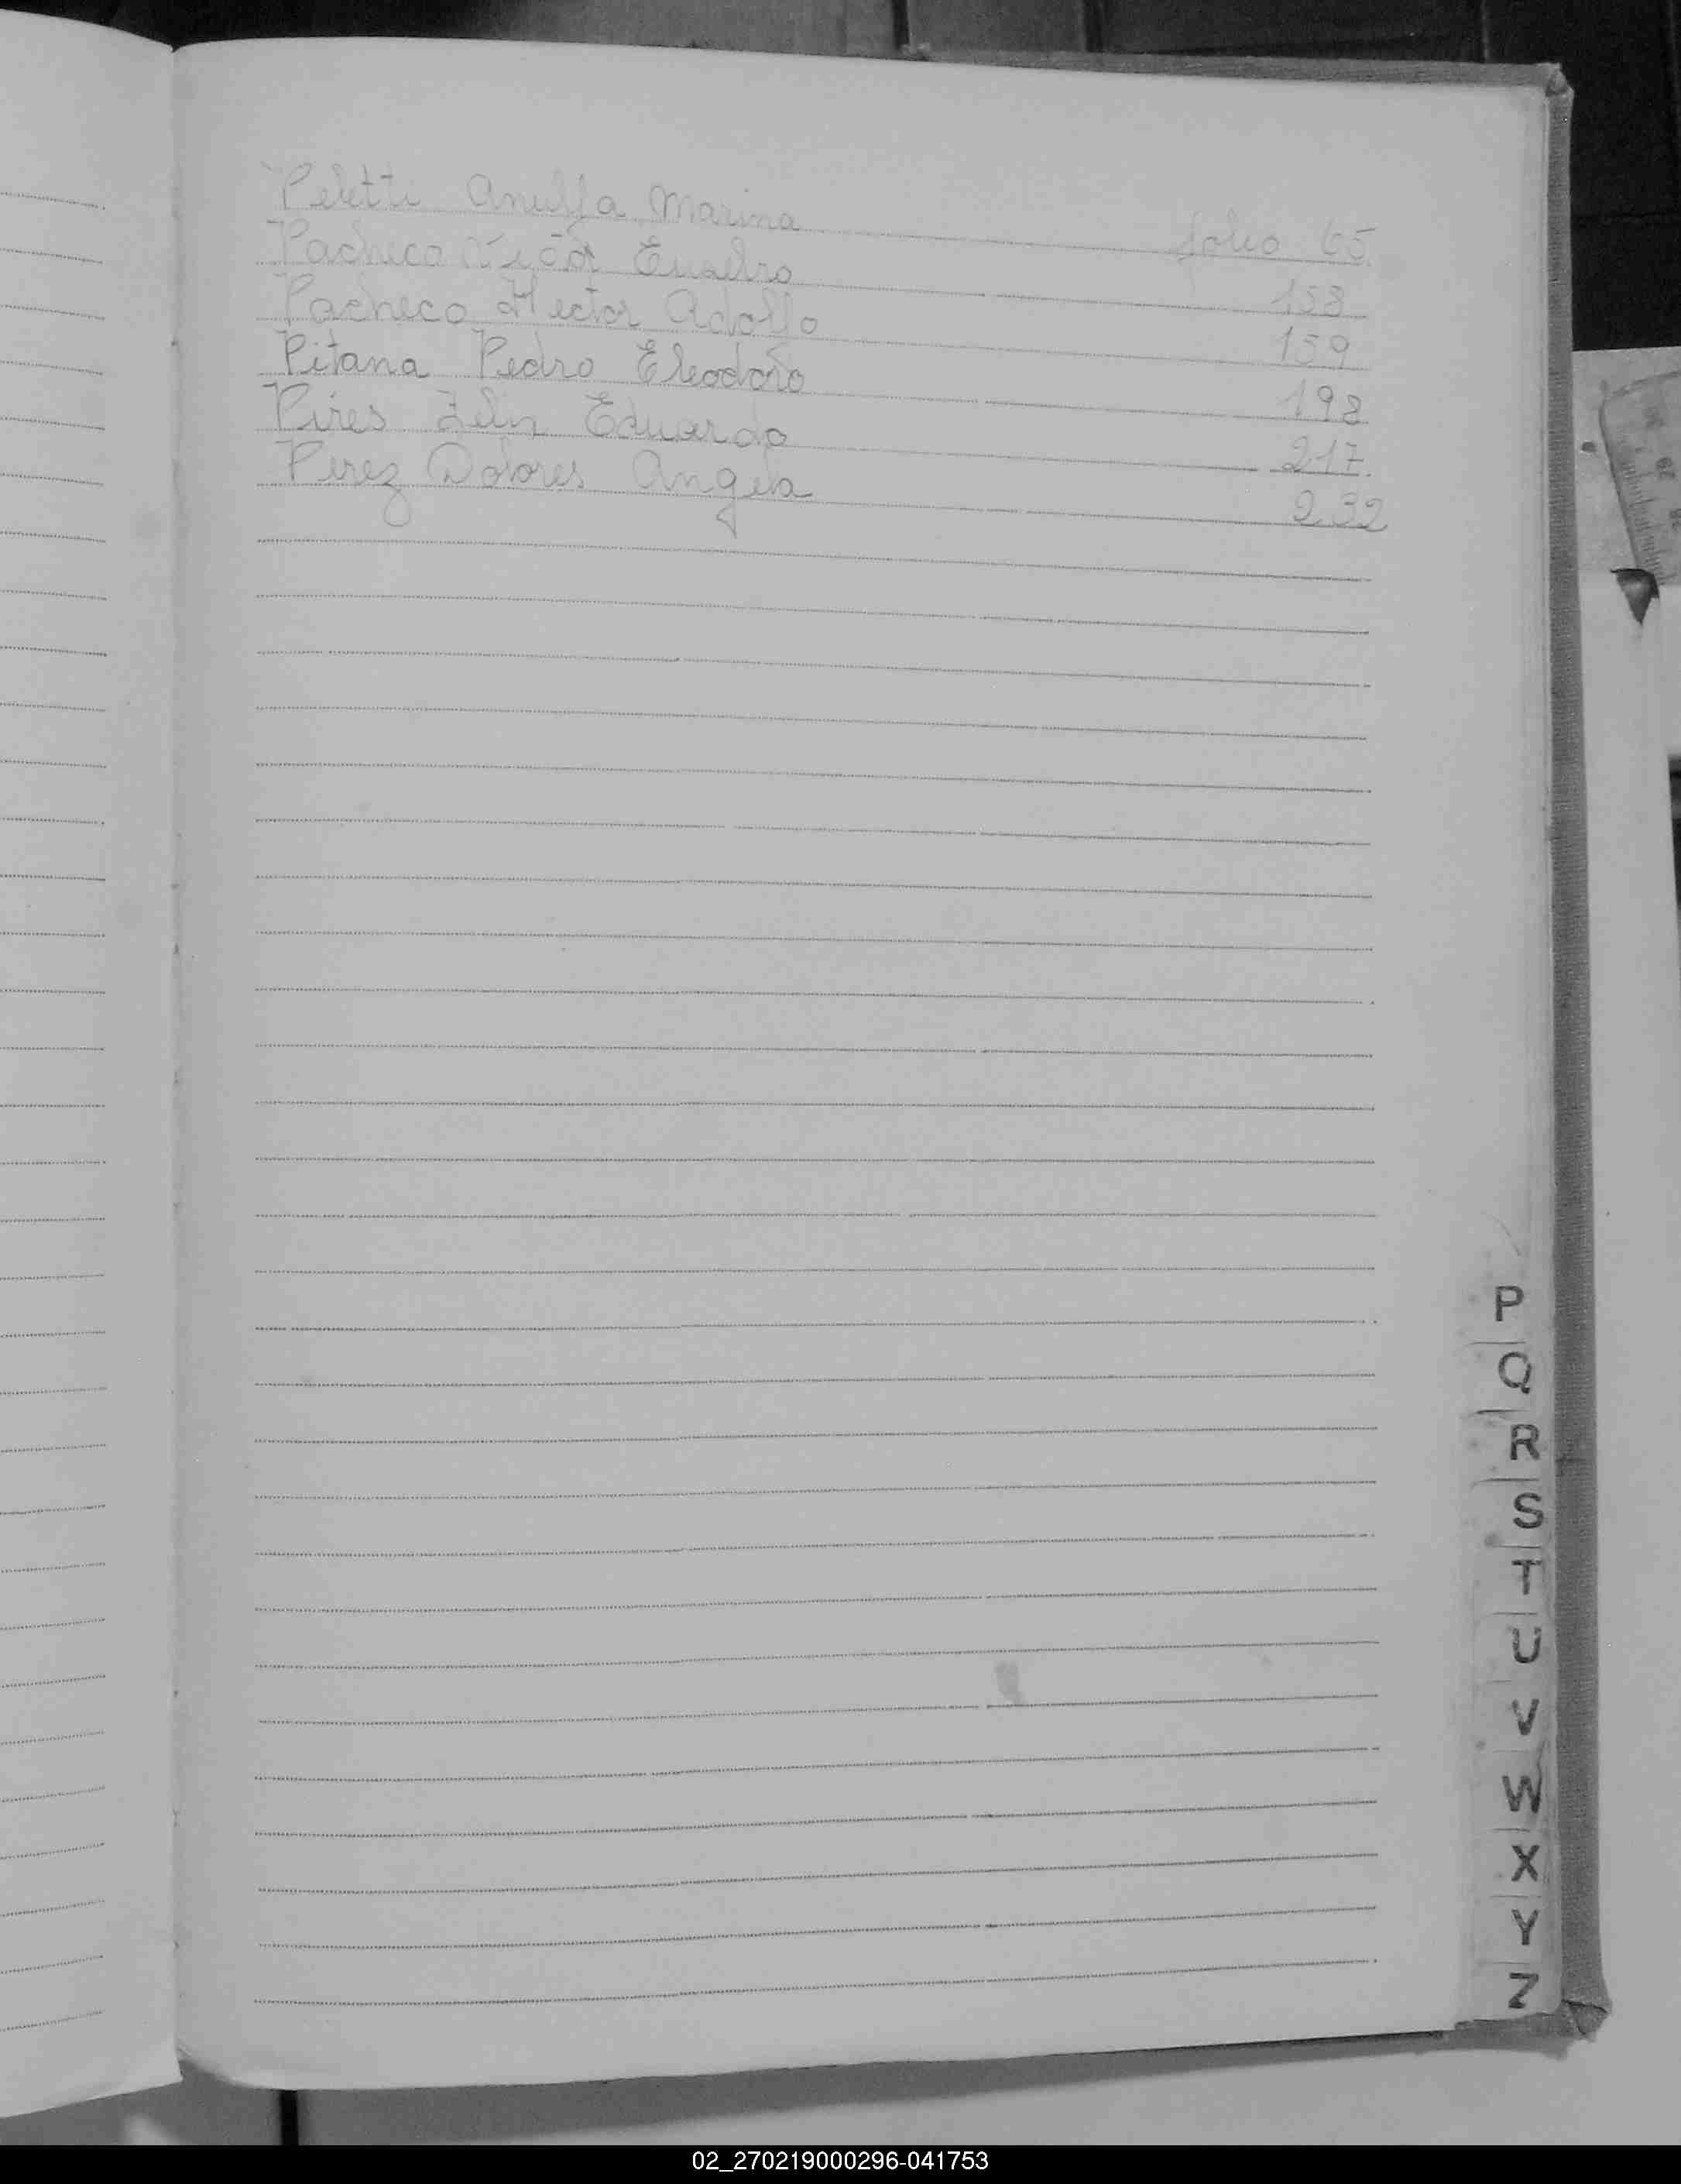 Peletti Marina folio 65
Pacheco 158
Pacheco Hector Adolfo 159
Pitana Pedro Eleodoro 198
Pires Eduardo 217
Perez Dolores Angela 232
P
Q
R
S
T
U
V
W
X
Y
Z
02_270219000296-041753